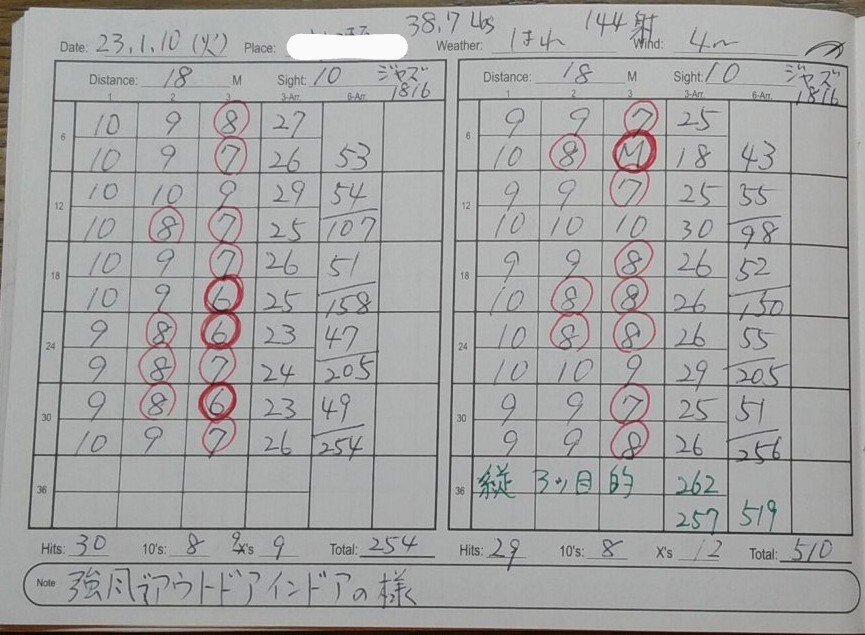 38.7 lbs 144射
Date: 23.1.10 (火) Place: Weather: はれ Wind: 4m
Distance: 18 M Sight: 10 ジャズ 1816
1 2 3 3-Arr. 6-Arr.
6 10 9 8 27
10 9 7 26 53
10 10 9 29 54
12 10 8 7 25 107
10 9 7 26 51
18 10 9 6 25 158
9 8 6 23 47
24 9 8 7 24 205
9 8 6 23 49
30 10 9 7 26 254
36
Hits: 30 10's: 8 9's X's 9 Total: 254
Distance: 18 M Sight: 10 ジャズ 1816
1 2 3 3-Arr. 6-Arr.
6 9 9 7 25
10 8 M 18 43
9 9 7 25 55
12 10 10 10 30 98
9 9 8 26 52
18 10 8 8 26 150
10 8 8 26 55
24 10 10 9 29 205
9 9 7 25 51
30 9 9 8 26 256
36 縦 3ッ目的 262
257 519
Hits: 29 10's: 8 X's 12 Total: 510
Note 強風でアウトドアインドアの様